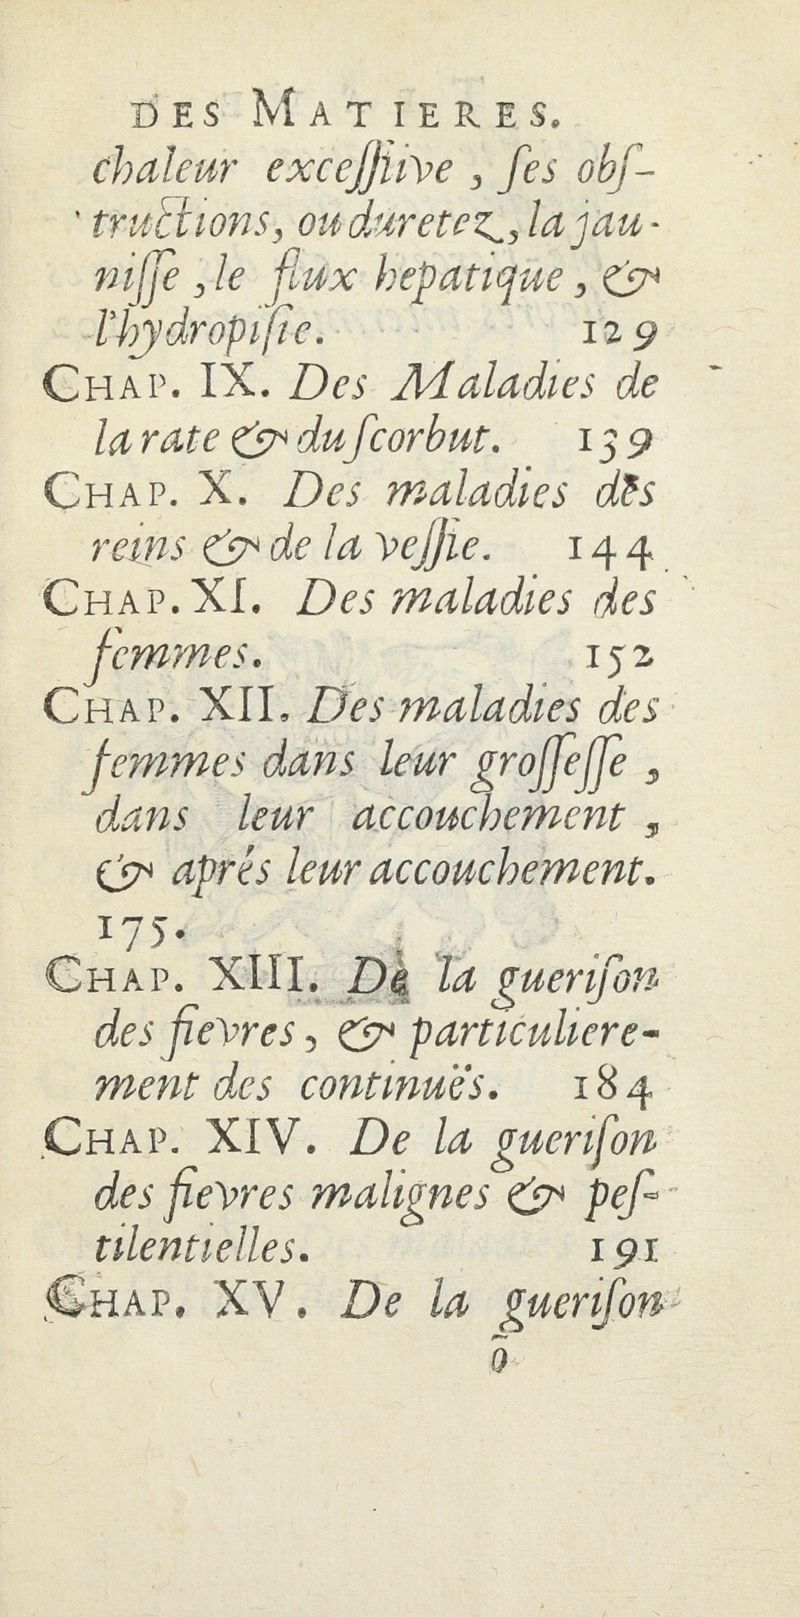 DES MATIERES.
chaleur exceſſive, ſes obſ-
tructions, ou duretez, la jau-
niſſe, le flux hepatique, &
l'hydropiſie. 129
CHAP. IX. Des Maladies de
la rate & du ſcorbut. 139
CHAP. X. Des maladies des
reins & de la veſſie. 144
CHAP. XI. Des maladies des
femmes. 152
CHAP. XII. Des maladies des
femmes dans leur groſſeſſe,
dans leur accouchement,
& aprés leur accouchement.
175.
CHAP. XIII. De la gueriſon
des fievres, & particuliere-
ment des continuës. 184
CHAP. XIV. De la gueriſon
des fievres malignes & peſ-
tilentielles. 191
CHAP. XV. De la gueriſon
õ